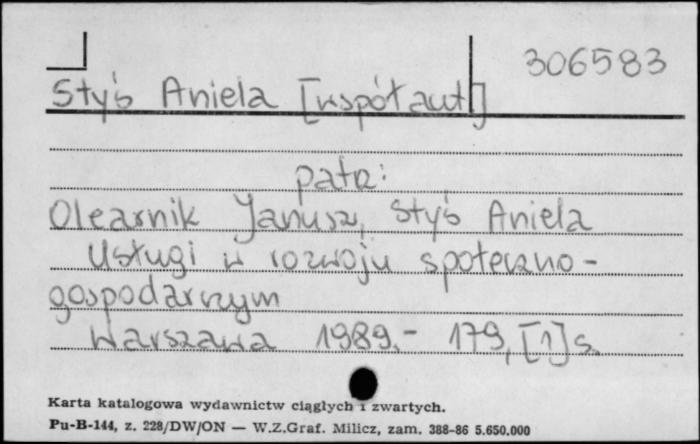 306583
Styś Aniela [współaut]
patrz:
Olearnik Janusz, Styś Aniela
Usługi w rozwoju społeczno-
gospodarczym
Warszawa 1989.- 179, [1] s.
Karta katalogowa wydawnictw ciągłych i zwartych.
Pu-B-144, z. 228/DW/ON — W.Z.Graf. Milicz, zam. 388-86 5.650.000